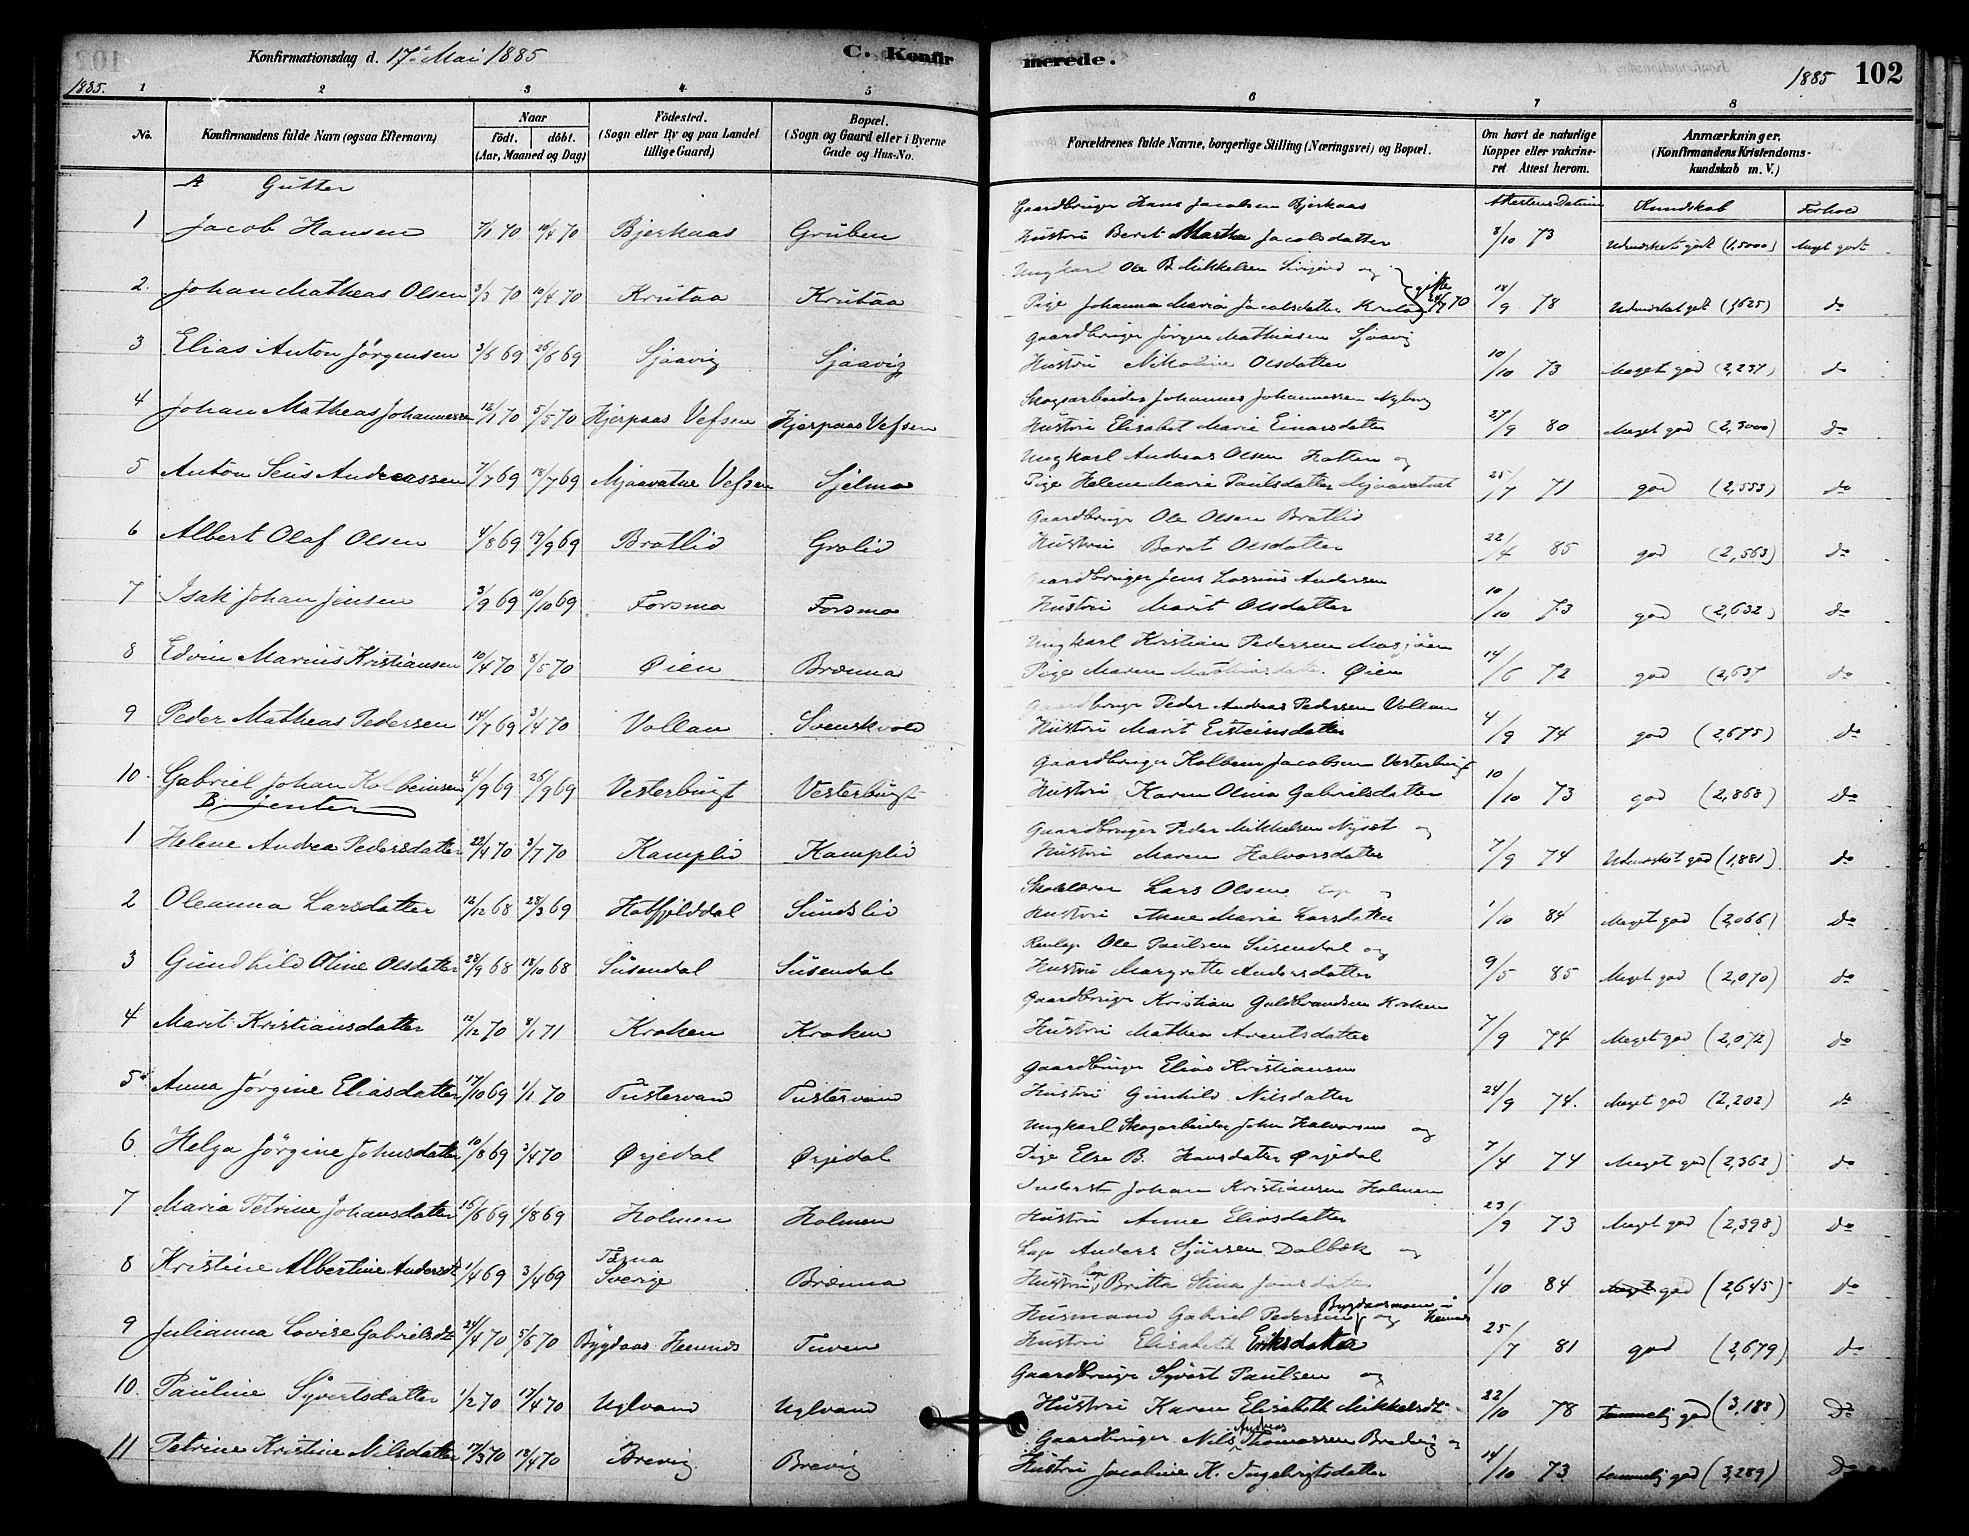 Konfirmationsdag d. 17de Mai 1885
C. Konfirmerede.
1885 102
1885.
1 2 3 4 5 6 7 8
No. Konfirmandens fulde Navn (ogsaa Efternavn) Naar födt. döbt. (Aar, Maaned og Dag) Födested. (Sogn eller By og paa Landet tillige Gaard) Bopæl. (Sogn og Gaard eller i Byerne Gade og Hus-No. Forældrenes fulde Navne, borgerlige Stilling (Næringsvei) og Bopæl. Om havt de naturlige Kopper eller vakcineret Attest herom. Anmærkninger. (Konfirmandens Kristendomskundskab m. V.)
A Gutter
Attestens Datum Kundskab Forhold
Gaardbruger Hans Jacobsen Bjerkaas
1 Jacob Hansen 7/1 70 10/4 70 Bjerkaas Gruben Hustru Beret Martha Jacobsdatter 8/10 73 Udmerket godt (1,5000) Meget godt
Ungkarl Ole B. Mikkelsen og gifte
2. Johan Matheas Olsen 3/3 70 10/4 70 Krutaa Krutaa Pige Johanna Maria Jacobsdatter Krutaa 24/7 70 18/9 78 Udmerket godt (1,625) do
Gaardbruger Jörgen Mathiasen Sjaavig
3 Elias Anton Jörgensen 3/6 69 26/6 69 Sjaavig Sjaavig Hustru Nikoline Olsdatter 10/10 73 Meget god (2,237) do
Skogsarbeider Johannes Johannessen Nyberg
4 Johan Matheas Johannessen 12/1 70 5/5 70 Hjerpaas Vefsen Hjerpaas Vefsen Hustru Elisabet Marie Einarsdatter 27/9 80 Meget god (2,3000) do
Ungkarl Andreas Olsen Hatten og
5 Anton Seus Andreassen 7/7 69 18/7 69 Mjaavatne Vefsen Sjelmo Pige Helene Marie Paulsdatter Mjaavatnet 25/7 71 god (2,553) do
Gaardbruger Ole Olsen Bratlid
6 Albert Olaf Olsen 4/8 69 19/9 69 Bratlid Gralid Hustru Beret Olsdatter 22/4 85 god (2,563) do
Gaardbruger Jens Lassius Andersen
7 Isak Johan Jensen 3/9 69 10/10 69 Forsmo Forsmo Hustru Marit Olsdatter 10/10 73 god (2,632) do
Ungkarl Kristian Pedersen Mosjöen
8 Edvin Marius Kristiansen 10/4 70 8/5 70 Øien Brænna Pige Maren Mathiasdatter Øien 14/6 72 god (2,637 do
Gaardbruger Peder Andreas Pedersen Vollan
9 Peder Matheas Pedersen 14/7 69 3/4 70 Vollan Svenskvold Hustru Marit Eisteinsdatter 4/9 74 god (2,675) do
Gaardbruger Kolbein Jacobsen Vesterbugt
10. Gabriel Johan Kolbeinsen 4/9 69 26/9 69 Vesterbugt Vesterbugt Hustru Karen Olina Gabrielsdatter 10/10 73 god (2,868) do
B. Jenter
Gaardbruger Peder Mikkelsen Nysæt og
1 Helene Andrea Pedersdatter 22/4 70 3/7 70 Kamplid Kamplid Hustru Maren Halvorsdatter 7/9 74 Udmerket god (1,881) do
Skolelærer Lars Olsen Lap og
2 Oleanna Larsdatter 12/12 68 28/3 69 Hatfjelddal Sundslid Hustru Anne Marie Larsdatter 1/10 84 Meget god (2,066) do
Renlap Ole Paulsen Susendal og
3 Gundhild Oline Olsdatter 28/9 68 18/10 68 Susendal Susendal Hustru Margrethe Andersdatter 9/5 85 Meget god (2,070) do
Gaardbruger Kristian Guldbrandsen Kroken
4 Marit Kristiansdatter 12/12 70 8/1 71 Kroken Kroken Hustru Mathea Arentsdatter 7/9 74 Meget god (2,072) do
Gaardbruger Elias Kristiansen
5 Anna Jörgine Eliasdatter 17/10 69 1/1 70 Tustervand Tustervand Hustru Gunhild Nilsdatter 24/9 74. Meget god (2,202) do
Ungkarl Skogarbeider John Halvorsen og
6 Helga Jörgine Johnsdatter 10/8 69 3/4 70 Ørjedal Ørjedal Pige Else B. Hansdatter Ørjedal 7/4 74 Meget god (2,362) do
Inderst Johan Kristiansen Holmen
7 Maria Petrine Johansdatter 16/6 69 1/8 69 Holmen Holmen Hustru Anne Eliasdatter 23/9 73 Meget god (2,398) do
Lap Anders Sjürsen Dalbæk og
8 Kristine Albertine Andersdt 1/4 69 3/4 69 Tærna Sverige Brænna Hustru Lap Britta Stina Jonsdatter 1/10 84 Meget god (2,645) do
Husmand Gabriel Pedersen Bygdaasmoen i Hemnes og
9 Julianna Lovise Gabrielsdt 24/4 70 5/6 70 Bygdaas Hemnes Tuven Hustru Elisabeth Eriksdatter 25/7 81 god (2,679) do
Gaardbruger Syvert Paulsen og
10. Pauline Syvertsdatter 1/2 70 17/4 70 Uglvand Uglvand Hustru Karen Elisabeth Mikkelsdt. 22/10 78 Temmelig god (3,188) do
Gaardbruger Nils Andreas Thomassen Bredvig og
11 Petrine Kristine Nilsdatter 17/3 70 18/4 70 Brevig Brevig Hustru Jacobine K. Ingebrigtsdatter 14/10 73 temmelig god (3,289) do